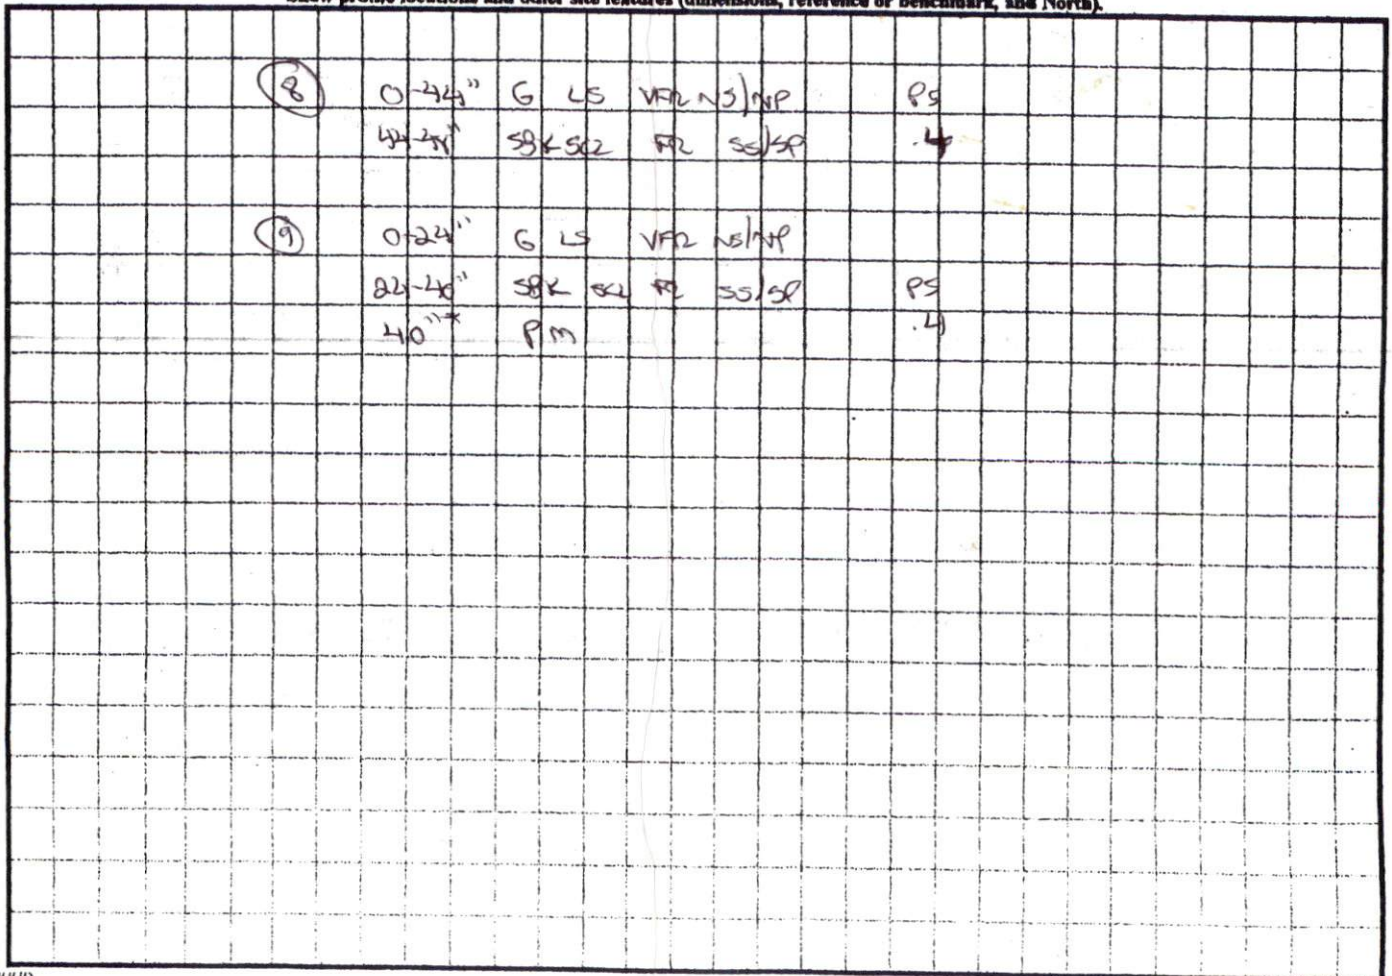 Show profile locations and other site features (dimensions, reference or benchmark, and North).
8 0-44" G LS VFR NS/NP PS
SBK SCL FR SS/SP .4
9 0-24" G LS VFR NS/NP
24-40" SBK SCL FR SS/SP PS
40"* PM .4